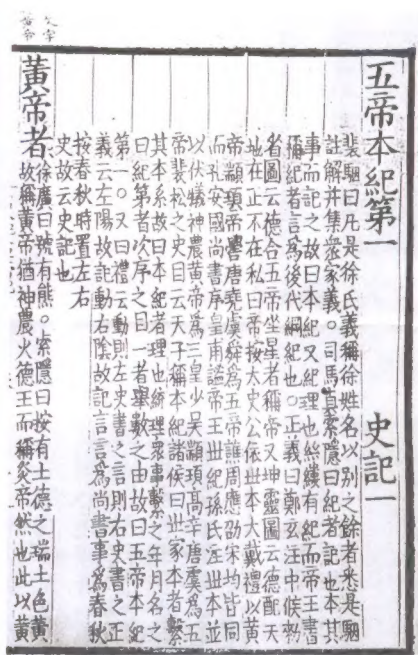 五帝本紀第一 史記一
裴駰曰凡是徐氏義稱徐姓名以別之餘者悉是駰
註解并集衆家義。司馬貞索隱曰紀者記也本其
事而記之故曰本紀又紀理也絲縷有紀而帝王書
稱紀者言爲後代綱紀也。正義曰鄭玄注中候勑
省圖云德合五帝坐星者稱帝又坤靈圖云德配天
地在正不在私曰帝按太史公依世本大戴禮以黃
帝顓頊帝嚳唐堯虞舜爲五帝譙周應劭宋均皆同
而孔安國尚書序皇甫謐帝王世紀孫氏注世本並
以伏犧神農黃帝爲三皇少昊顓頊高辛唐虞爲五
帝裴松之史目云天子稱本紀諸侯曰世家本者繫
其本系故曰本紀者理也統理衆事繫之年月名之
曰紀第者次序之目一者舉數之由故曰五帝本紀
第一。又曰禮云動則左史書之言則右史書之正
義云左陽故記動右陰故記言言爲尚書事爲春秋
按春秋時置左右
史故云史記也
黃帝者
徐廣曰號有熊。索隱曰按有土德之瑞土色黃
故稱黃帝猶神農火德王而稱炎帝然也此以黃